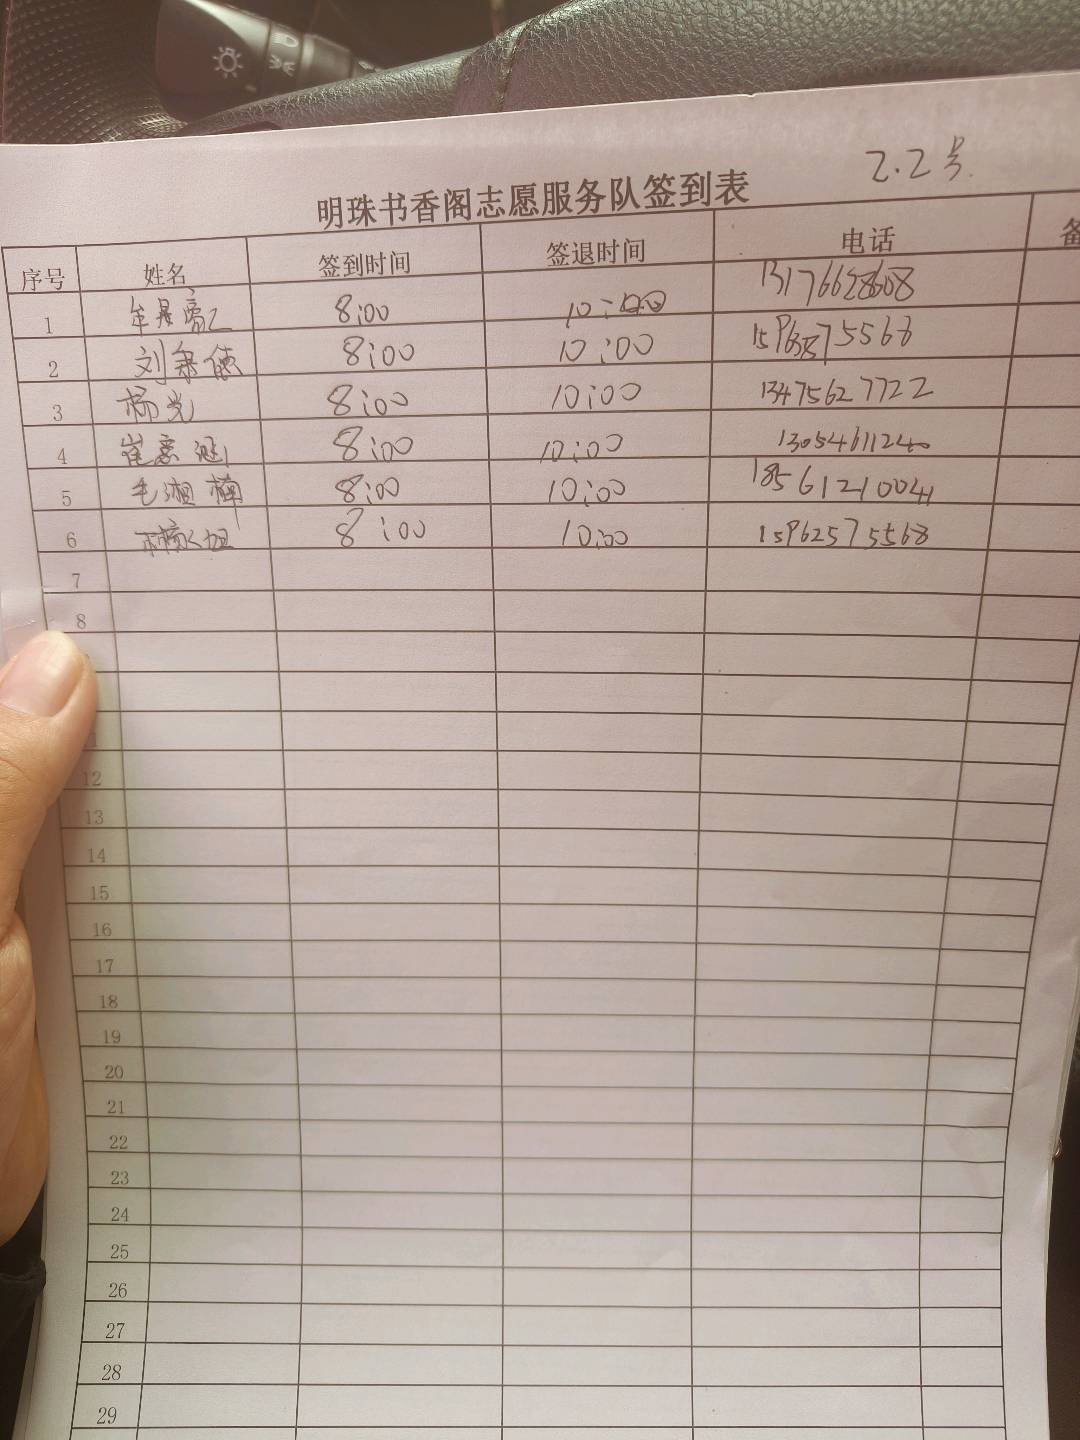 2.2号
明珠书香阁志愿服务队签到表
序号 姓名 签到时间 签退时间 电话 备
1 8:00 10:00 13176628608
2 刘 8:00 10:00
3 杨光 8:00 10:00 13475627722
4 崔 8:00 10:00 13054611240
5 毛湘楠 8:00 10:00 18561210041
6 8:00 10:00 15962575568
7
8
12
13
14
15
16
17
18
19
20
21
22
23
24
25
26
27
28
29